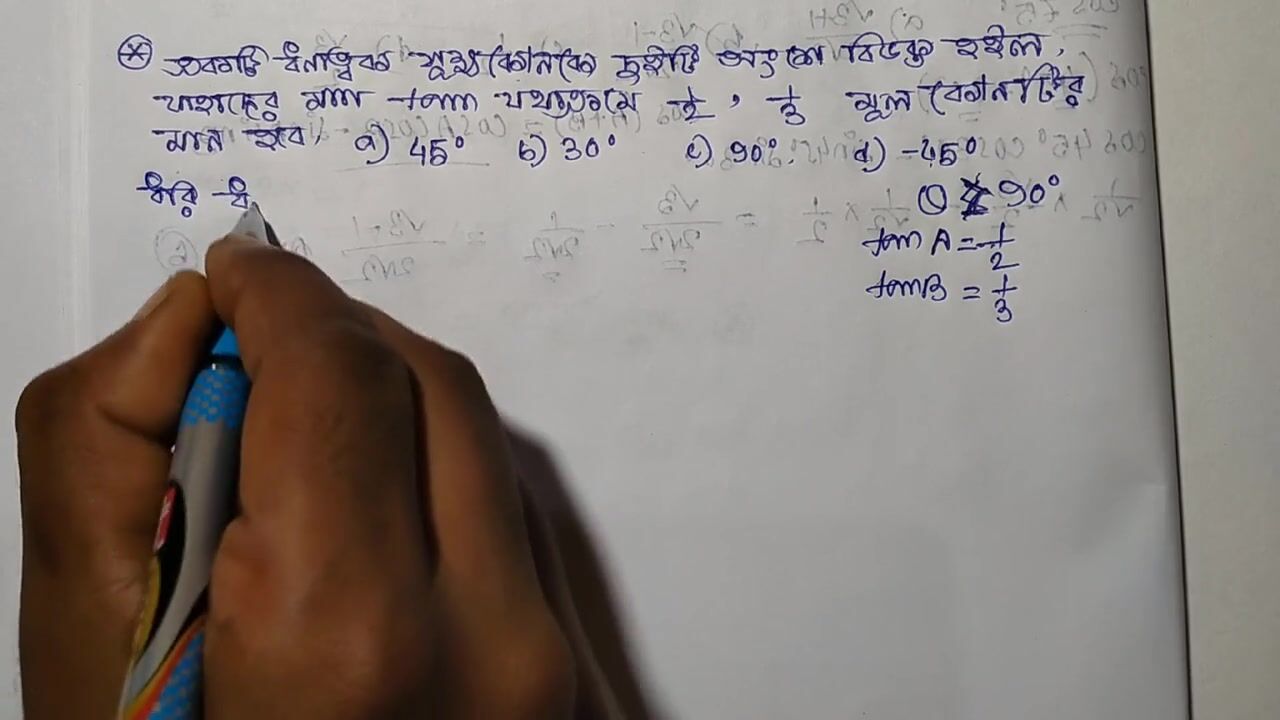 একটি ধনাত্বক সূক্ষ্মকোনকে দুইটি অংশে বিভক্ত হইল,
যাহাদের মান tan যথাক্রমে 1/2, 1/3 মূল কোনটির
মান হবে, a) 45° b) 30° c) 90°. d) -45°
ধরি ধ
90°
tan A = 1/2
tan B = 1/3